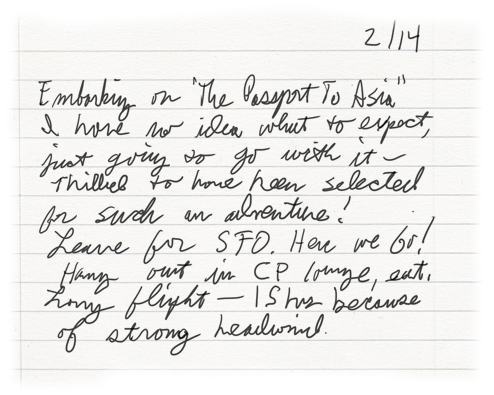 2/14
Embarking on "The Passport To Asia"
I have no idea what to expect,
just going to go with it –
Thilled to have been selected
for such an adventure!
Leave for SFO. Here we Go!
Hang out in CP lounge, eat.
Long flight – 15 hrs because
of strong headwind.